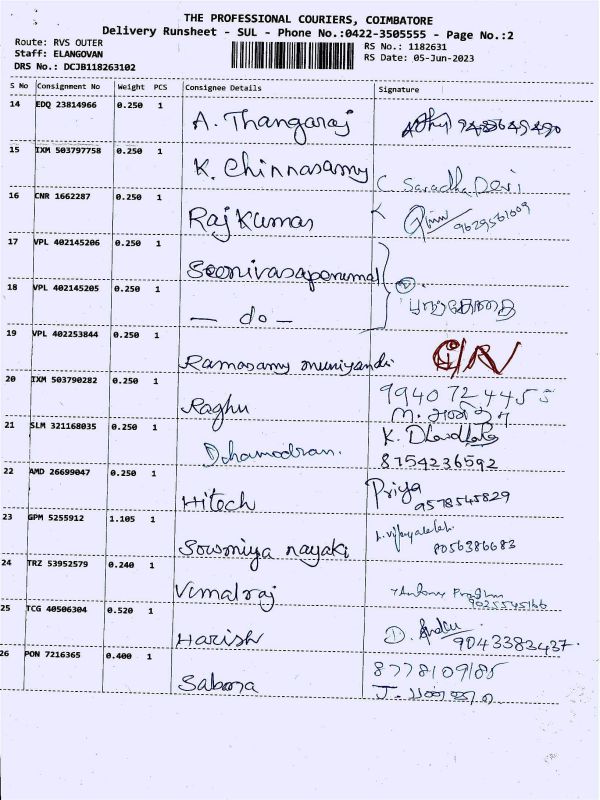 THE PROFESSIONAL COURIERS, COIMBATORE
Delivery Runsheet - SUL - Phone No.:0422-3505555 - Page No.:2
Route: RVS OUTER
Staff: ELANGOVAN
DRS No.: DCJB118263102
RS No.: 1182631
RS Date: 05-Jun-2023
S No Consignment No Weight PCS Consignee Details Signature
14 EDQ 23814966 0.250 1 A. Thangaraj
15 IXM 503797758 0.250 1 K. Chinnasamy Saradha Devi
16 CNR 1662287 0.250 1 Rajkumar 9629561009
17 VPL 402145206 0.250 1
18 VPL 402145205 0.250 1 — do —
19 VPL 402253844 0.250 1 Ramasamy muniyandi
20 IXM 503790282 0.250 1 Raghu 9940724455
21 SLM 321168035 0.250 1 Dhamodran. K.
8754236592
22 AMD 26699047 0.250 1 Hitech Priya
9578545829
23 GPM 5255912 1.105 1 Sowmiya nayaki
8056386683
24 TRZ 53952579 0.240 1 Vimalraj
25 TCG 40506304 0.520 1 Harish D.
9043383437
26 PON 7216365 0.400 1 8778109185